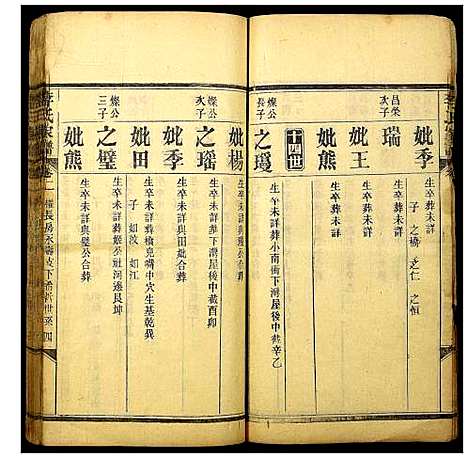 妣季
生卒葬未詳
子 之橋 之仁 之恒
昌榮
次子
瑞
生卒葬未詳
妣王
生卒葬未詳
妣熊
生卒葬未詳
十四世
燦公
長子
之瓊
生卒未詳葬小南衝下灣屋後中截辛乙
妣楊
生卒葬未詳
燦公
次子
之瑤
生卒未詳葬下灣屋後中截酉卯
妣季
生卒未詳與田妣合葬
妣田
生卒未詳葬槍兒嘴中穴生基乾巽
子 如汶 如江
燦公
三子
之璧
生卒未詳葬嫁公社河邊艮坤
妣熊
生卒未詳與璧公合葬
李氏家譜
卷一